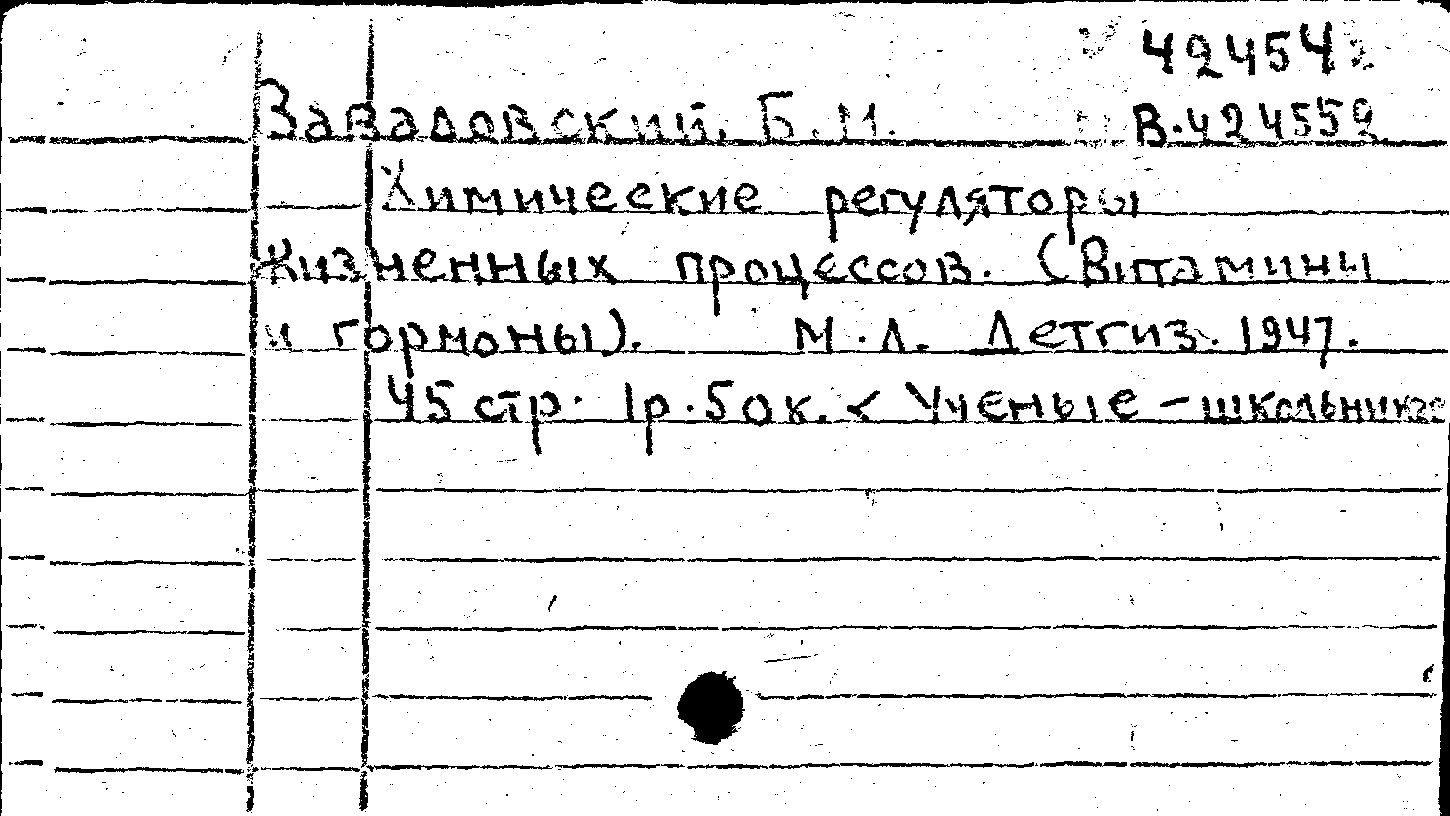 42454
Завадовский, Б.М. В.424552
Химические регуляторы
жизненных процессов. (Витамины
и гормоны). М.Л. Детгиз. 1947.
45 стр. 1р.50к. < Ученые - школьникам